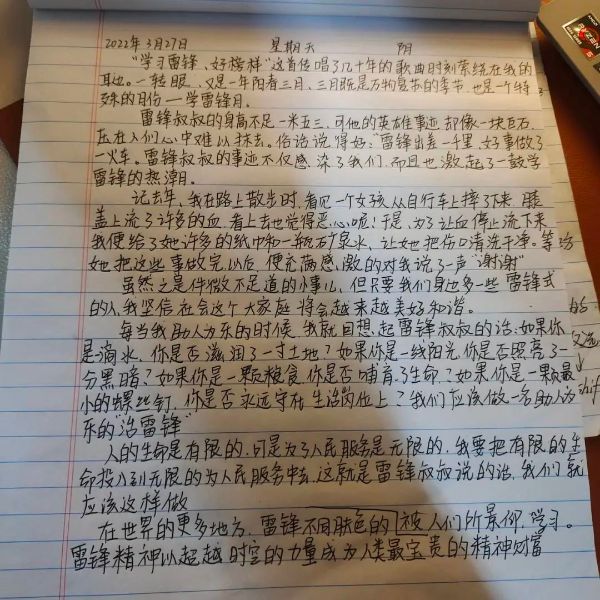 2022年3月27日 星期天 阴
"学习雷锋、好榜样"这首传唱了几十年的歌曲时刻萦绕在我的
耳边。一转眼、又是一年阳春三月、三月既是万物复苏的季节、也是一个特
殊的月份——学雷锋月。
雷锋叔叔的身高不足一米五三,可他的英雄事迹却像一块巨石,
压在人们心中难以抹去。俗话说得好:"雷锋出差一千里,好事做了
一火车。雷锋叔叔的事迹不仅感染了我们,而且也激起了一鼓学
雷锋的热潮。
记去年,我在路上散步时,看见一个女孩从自行车上摔了下来,膝
盖上流了许多的血,看上去也觉得恶心呢!于是,为了让血停止流下来,
我便给了她许多的纸巾和一瓶矿泉水,让她把伤口清洗干净。等
她把这些事做完以后,便充满感激的对我说了一声"谢谢"
虽然这是件微不足道的小事儿,但只要我们身边多一些雷锋式
的人,我坚信社会这个大家庭将会越来越美好和谐。
每当我助人为乐的时候,我就回想起雷锋叔叔的话:如果你
是滴水,你是否滋润了一寸土地?如果你是一线阳光,你是否照亮了一
分黑暗?如果你是一颗粮食,你是否哺育了生命?如果你是一颗最
小的螺丝钉,你是否永远守在生活岗位上?我们应该做一名助人为
乐的"活雷锋"
人的生命是有限的,可是为了人民服务是无限的,我要把有限的生
命投入到无限的为人民服务中去,这就是雷锋叔叔说的话,我们就
应该这样做
在世界的更多地方,雷锋不同肤色的被人们所景仰,学习。
雷锋精神以超越时空的力量成为人类最宝贵的精神财富
AMD
RYZEN